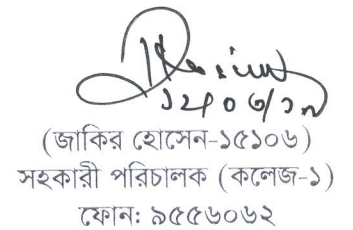 (জাকির হোসেন-১৫১০৬)
সহকারী পরিচালক (কলেজ-১)
ফোন: ৯৫৫৬০৬২